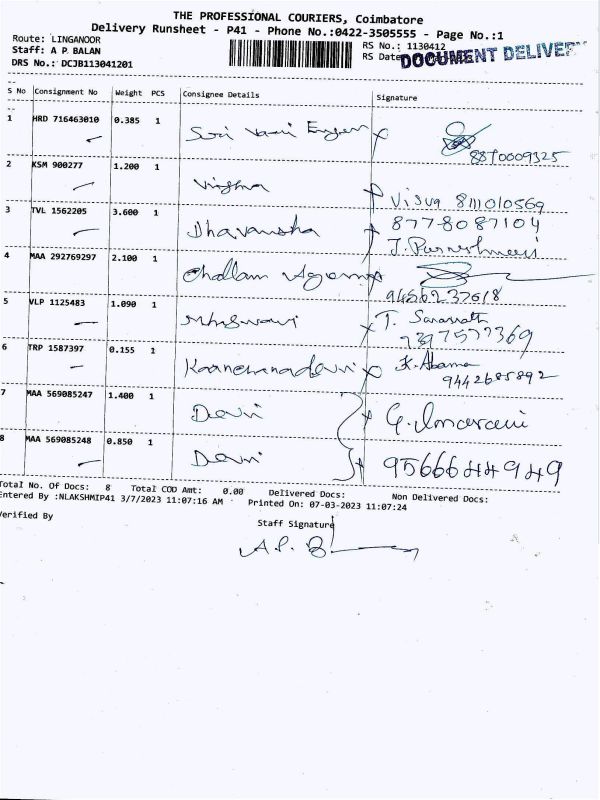 THE PROFESSIONAL COURIERS, Coimbatore
Delivery Runsheet - P41 - Phone No.:0422-3505555 - Page No.:1
Route: LINGANOOR
RS No.: 1130412
Staff: A P BALAN
RS Date
DOCUMENT DELIVER
DRS No.: DCJB113041201
S No Consignment No Weight PCS Consignee Details Signature
1 HRD 716463010 0.385 1 Sri Vaari
8870009325
2 KSM 900277 1.200 1 Vighna Visva 8111010569
3 TVL 1562205 3.600 1 Dhavansha 8778087104
4 MAA 292769297 2.100 1 Challam
9456237618
5 VLP 1125483 1.090 1 T.
6 TRP 1587397 0.155 1 Kaanchanadevi K. Abama
9442685892
7 MAA 569085247 1.400 1 Devi G.
8 MAA 569085248 0.850 1 Devi 9566644949
Total No. Of Docs: 8 Total COD Amt: 0.00 Delivered Docs: Non Delivered Docs:
Entered By :NLAKSHMIP41 3/7/2023 11:07:16 AM Printed On: 07-03-2023 11:07:24
Verified By
Staff Signature
A.P. B